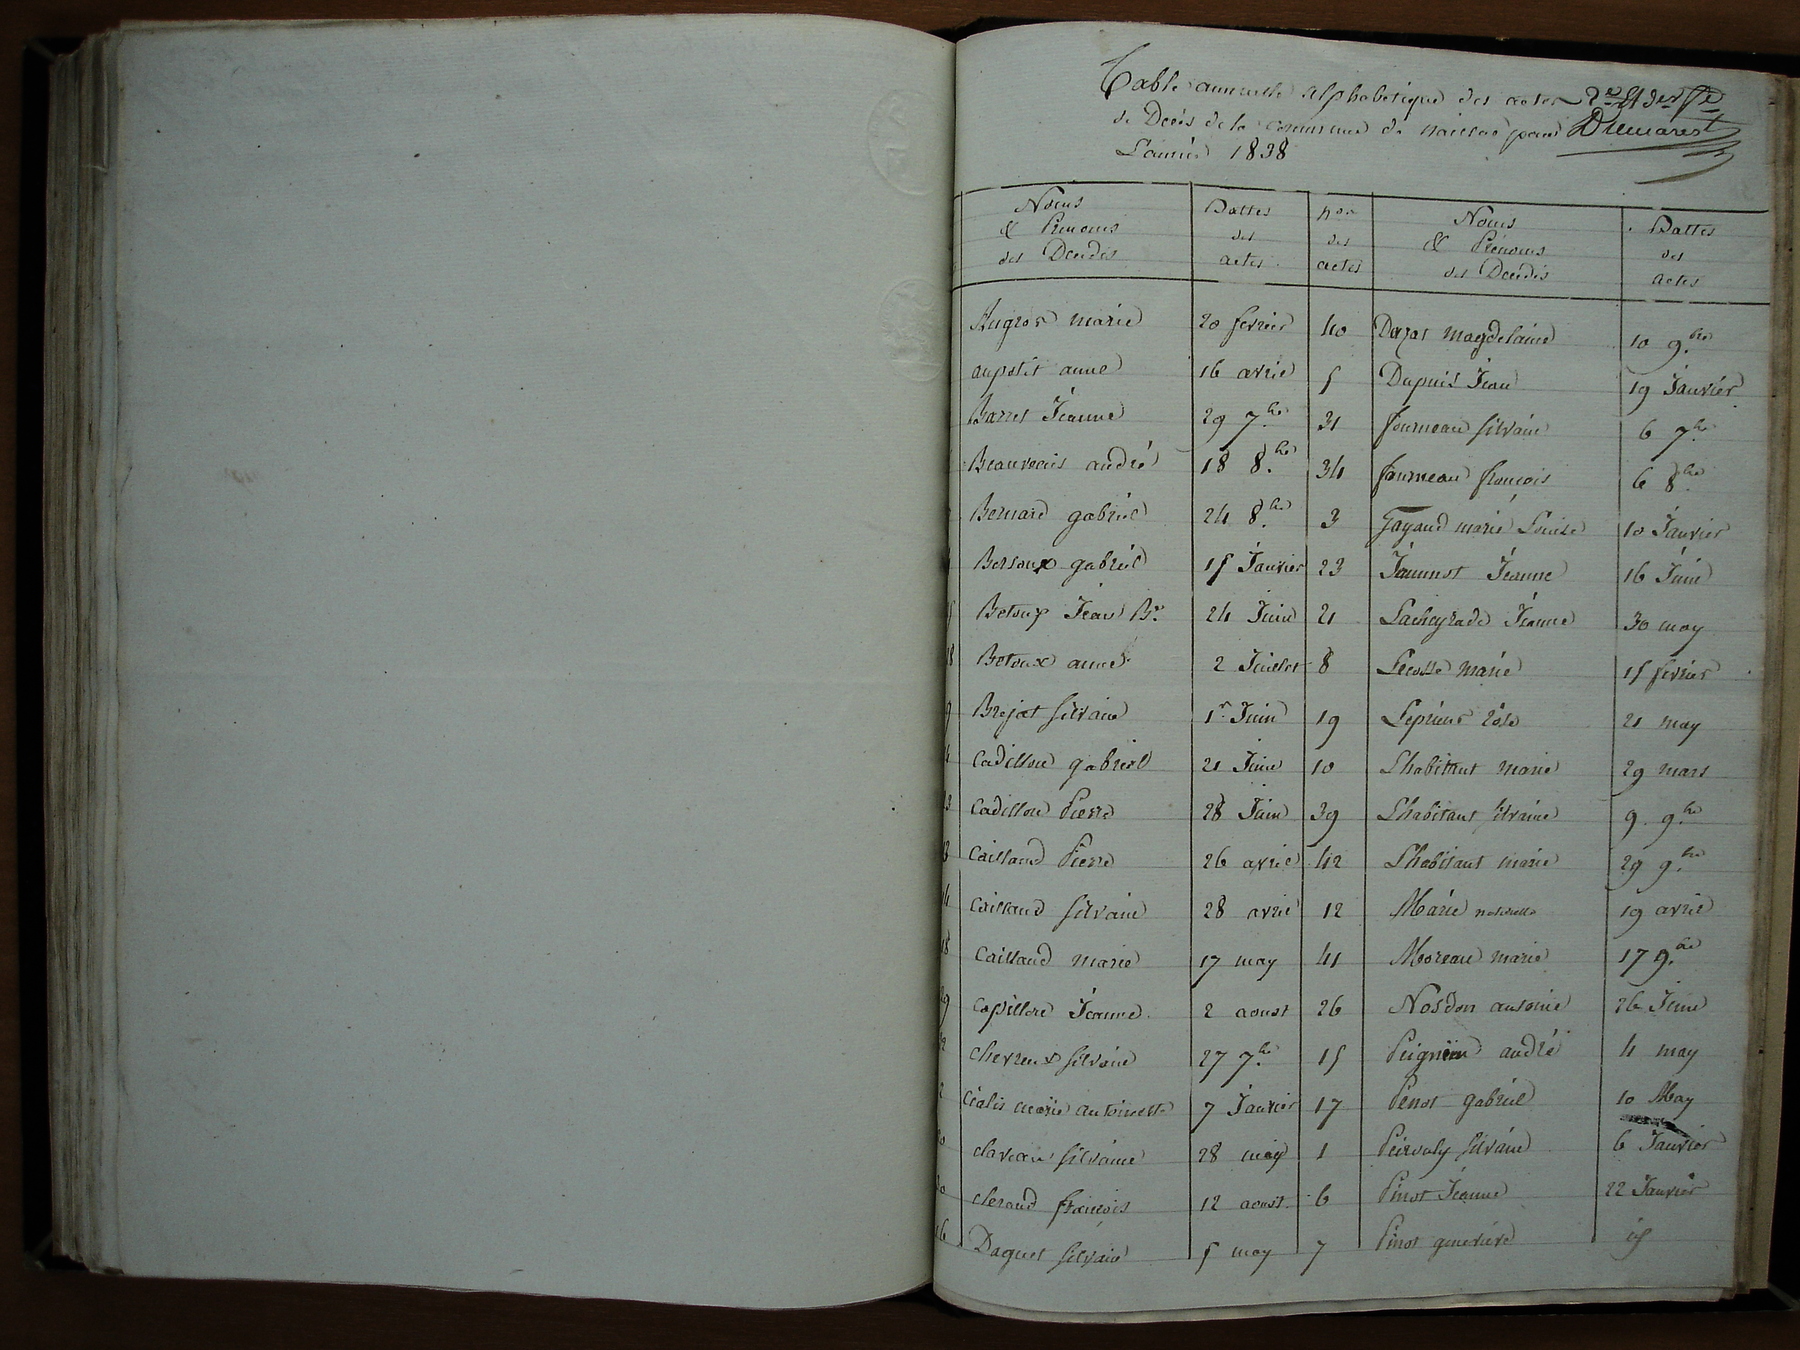 Table annuelle alphabétique des actes
de Décés de la commune de Naillac pour
L'année 1838
Demarest
Noms & Prénoms des Décédés | Dattes des actes | Nos des actes | Noms & Prénoms des Décédés | Dattes des actes
Augros marie | 20 fevrier | 40 | Dazat magdelaine | 10 9.bre
aupetit anne | 16 avril | 5 | Dupuis Jean | 19 Janvier
Barret Jeanne | 29 7.bre | 31 | fourneau silvain | 6 7.bre
Beauvais andré | 18 8.bre | 34 | fourneau francois | 6 8.bre
Bernard gabriel | 24 8.bre | 3 | Gayaud marie Louise | 10 Janvier
gabriel | 15 Janvier | 23 | Jeanne | 16 Juin
Betoux Jean B.te | 24 Juin | 21 | Jeanne | 30 may
Betoux anne | 2 Juillet | 8 | Lecosse marie | 15 fevrier
Brejat silvain | 1.r Juin | 19 | Leprieur rose | 21 may
Cadillon gabriel | 21 Juin | 10 | Lhabitant marie | 29 mars
Cadillon Pierre | 28 Juin | 39 | Lhabitant silvaine | 9 9.bre
Caillaud Pierre | 26 avril | 42 | Lhabitant marie | 29 9.bre
Caillaud silvain | 28 avril | 12 | Marie naturelle | 19 avril
Caillaud marie | 17 may | 41 | Moreau marie | 17 9.bre
Capillon Jeanne | 2 aoust | 26 | antoine | 26 Juin
chevreux silvain | 27 7.bre | 15 | andré | 4 may
Cialis marie antoinette | 7 Janvier | 17 | Penot gabriel | 10 May
claveau silvaine | 28 may | 1 | silvain | 6 Janvier
cleraud francois | 12 aoust | 6 | Pinot Jeanne | 22 Janvier
Daguet silvain | 5 may | 7 | Pinot genevieve